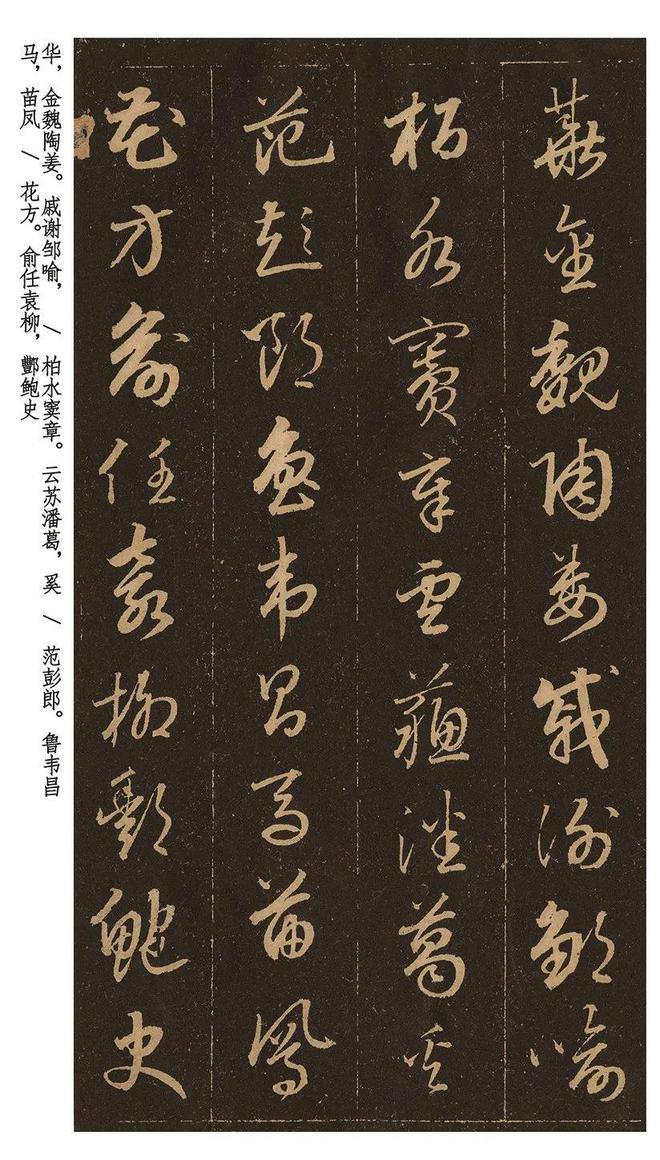 華金魏陶姜戚謝鄒喻
柏水竇章雲蘇潘葛奚
范彭郎魯韋昌馬苗鳳
花方俞任袁柳酆鮑史
华，金魏陶姜。戚谢邹喻，／柏水窦章。云苏潘葛，奚／范彭郎。鲁韦昌
马，苗凤／花方。俞任袁柳，酆鲍史